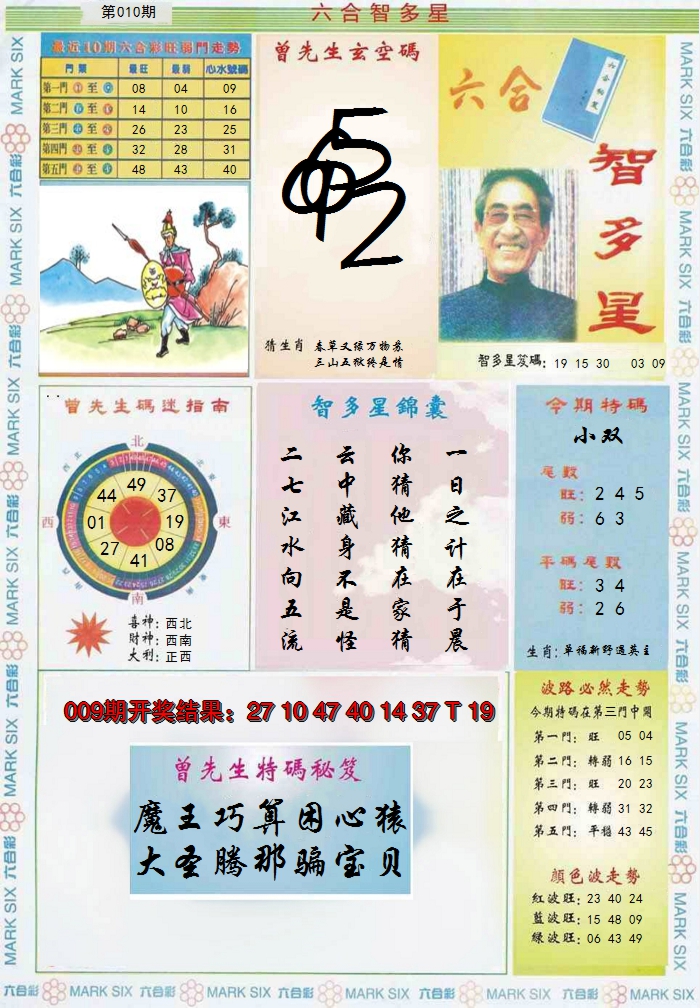 第010期
六合智多星
最近10期六合彩旺弱門走勢
門類 最旺 最弱 心水號碼
第一門 至 08 04 09
第二門 至 14 10 16
第三門 至 26 23 25
第四門 至 32 28 31
第五門 至 48 43 40
曾先生玄空碼
猜生肖 春草又綠万物蘇
三山五狱終是情
六合
智多星
智多星笈碼: 19 15 30 03 09
曾先生碼迷指南
北
西
東
南
49
37
19
08
41
27
01
44
喜神: 西北
財神: 西南
大利: 正西
智多星錦囊
一日之计在于晨
你猜他猜在家猜
云中藏身不是怪
二七江水向五流
今期特碼
小双
尾數
旺: 2 4 5
弱: 6 3
平碼尾數
旺: 3 4
弱: 2 6
生肖: 草福新野遇英主
009期开奖结果: 27 10 47 40 14 37 T 19
曾先生特碼秘笈
魔王巧算困心猿
大圣腾那骗宝贝
波路必然走勢
今期特碼在第三門中開
第一門: 旺 05 04
第二門: 轉弱 16 15
第三門: 旺 20 23
第四門: 轉弱 31 32
第五門: 平穩 43 45
顏色波走勢
紅波旺: 23 40 24
藍波旺: 15 48 09
綠波旺: 06 43 49
MARK SIX 六合彩